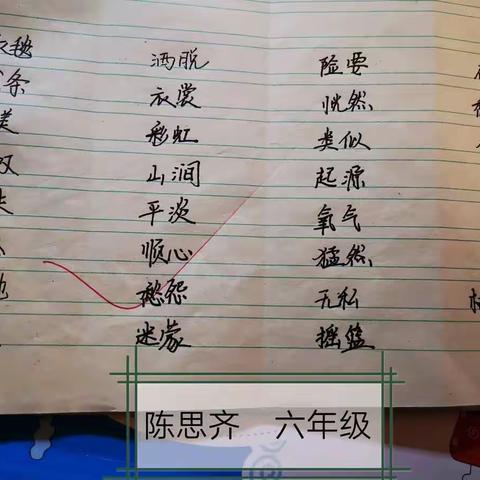 毯 洒脱 险要
条 衣裳 恍然
美 彩虹 类似
叹 山涧 起源
平淡 氧气
顺心 猛然
地 愁怨 无私
迷蒙 摇篮
陈思齐 六年级